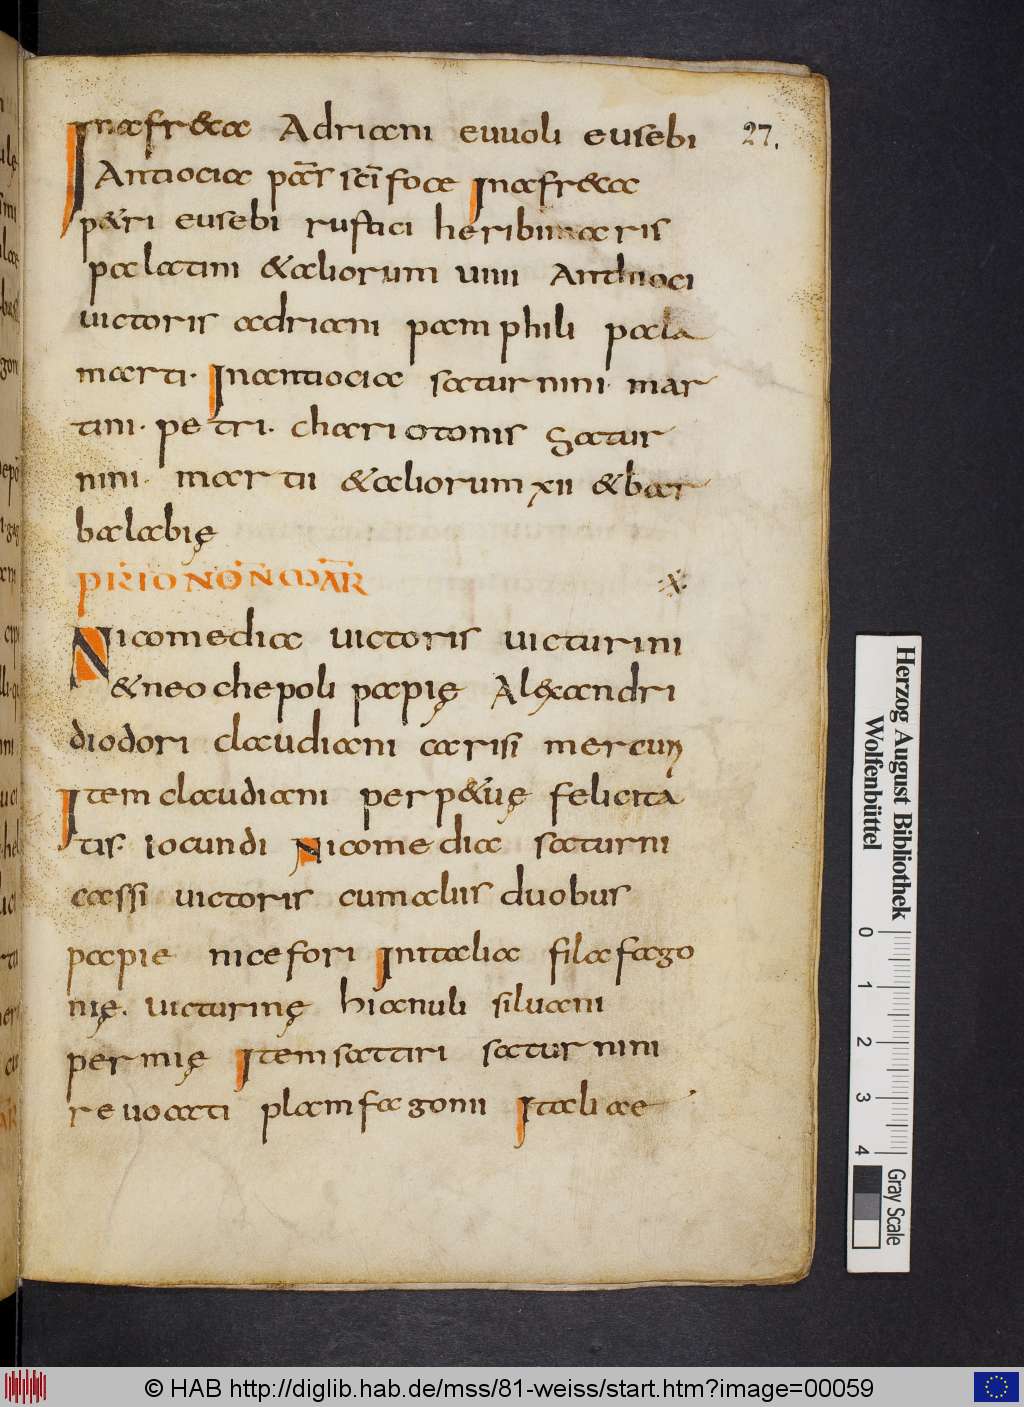 Inafr&ca Adriani euuoli eusebi
27.
Antiociae pas̅s sc̅i focae Inafr&ca
p&ri eusebi rustici heribimaris
palatini &aliorum uiiii Anthioci
uictoris adriani pamphili pala
marti. Inantiocia saturnini mar
tini. petri. chariotonis Satur
nini. martii &aliorum xii &bar
balabię
PRIO NON̅ MAR̅
Nicomedia uictoris uicturini
&neochepoli papię Alęxandri
diodori claudiani carisi mercurii
Item claudiani perp&uę felicita
tis. iocundi Nicomedia saturni
cassi uictoris cum aliis duobus
papie nicefori Initalia filafago
nię. uicturinę hianuli siluani
permię Item sattiri saturnini
reuoati plamfagonii Italiae
Herzog August Bibliothek
Wolfenbüttel
0 1 2 3 4
Gray Scale
© HAB http://diglib.hab.de/mss/81-weiss/start.htm?image=00059